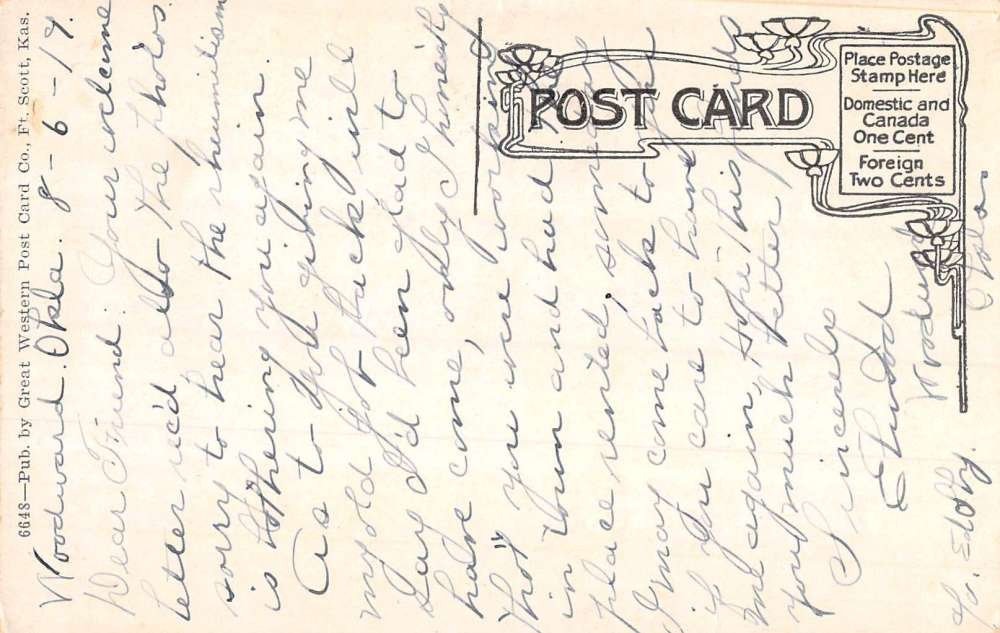 6648—Pub. by Great Western Post Card Co., Ft. Scott, Kas.
POST CARD
Place Postage
Stamp Here
Domestic and
Canada
One Cent
Foreign
Two Cents
Woodward. Okla. 8-6-17.
Dear Friend: Your welcome
letter rec'd also the photos
sorry to hear the rheumatism
is bothering you again.
As to you giving me
my old job back will
say I'd been glad to
have come, only I honestly
tho't you were working
in town and had
place rented, some
I may come back to you
if you care to have
me again, Hope this finds
you much better
Sincerely
Woodward
Okla